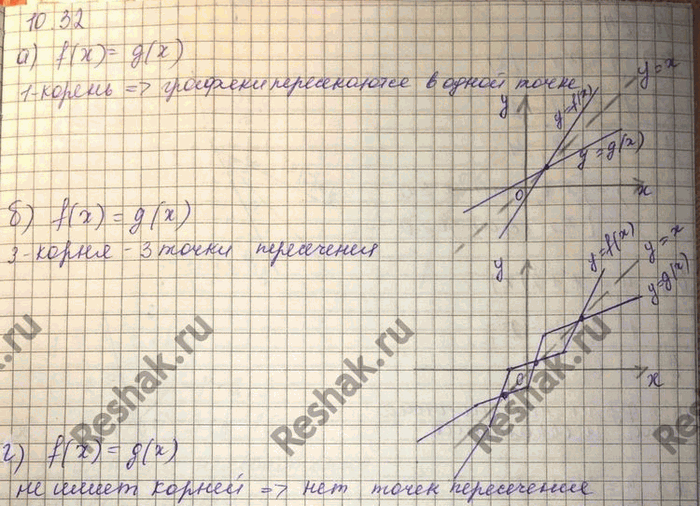 10.32
а) f(x) = g(x)
1-корень => графеки пересекаются в одной точке
y
y=f(x)
y=x
y=g(x)
0
x
б) f(x) = g(x)
3-корня - 3 точки пересечения
y
y=f(x)
y=x
y=g(x)
0
x
Reshak.ru
Reshak.ru
Reshak.ru
г) f(x) = g(x)
не имеет корней => нет точек пересечение